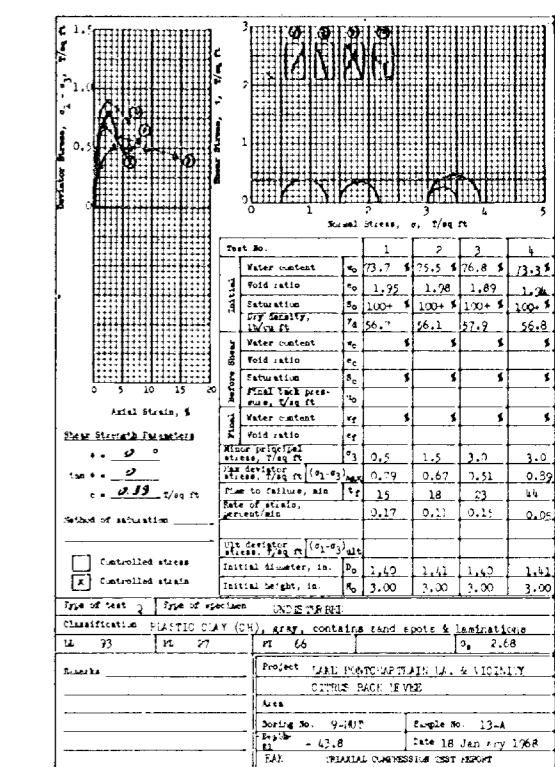 Deviator Stress, σ1 - σ3, T/sq ft
1.5
1.0
0.5
0
0 5 10 15 20
Axial Strain, %
Shear Stress, τ, T/sq ft
3
2
1
0
0 1 2 3 4 5
Normal Stress, σ, T/sq ft
Shear Strength Parameters
φ = 0 °
tan φ = 0
c = 0.39 T/sq ft
Method of saturation
Controlled stress
x Controlled strain
Test No. 1 2 3 4
Initial
Water content wo 73.7 % 75.5 % 76.8 % 73.3 %
Void ratio eo 1.95 1.98 1.89 1.94
Saturation So 100+ % 100+ % 100+ % 100+ %
Dry density, lb/cu ft γd 56.7 56.1 57.9 56.8
Before Shear
Water content wc % % % %
Void ratio ec
Saturation Sc % % % %
Final back pressure, T/sq ft uo
Final
Water content wf % % % %
Void ratio ef
Minor principal stress, T/sq ft σ3 0.5 1.5 3.0 3.0
Max deviator stress, T/sq ft (σ1-σ3)max 0.79 0.67 0.51 0.89
Time to failure, min tf 15 18 23 44
Rate of strain, percent/min 0.17 0.11 0.15 0.05
Ult deviator stress, T/sq ft (σ1-σ3)ult
Initial diameter, in. Do 1.40 1.41 1.40 1.41
Initial height, in. Ho 3.00 3.00 3.00 3.00
Type of test Q Type of specimen UNDISTURBED
Classification PLASTIC CLAY (CH), gray, contains sand spots & laminations
LL 93 PL 27 PI 66 Gs 2.68
Remarks
Project LAKE PONTCHARTRAIN LA. & VICINITY
CITRUS BACK LEVEE
Area
Boring No. 9-MUT Sample No. 13-A
Depth El - 43.8 Date 18 January 1968
TRIAXIAL COMPRESSION TEST REPORT